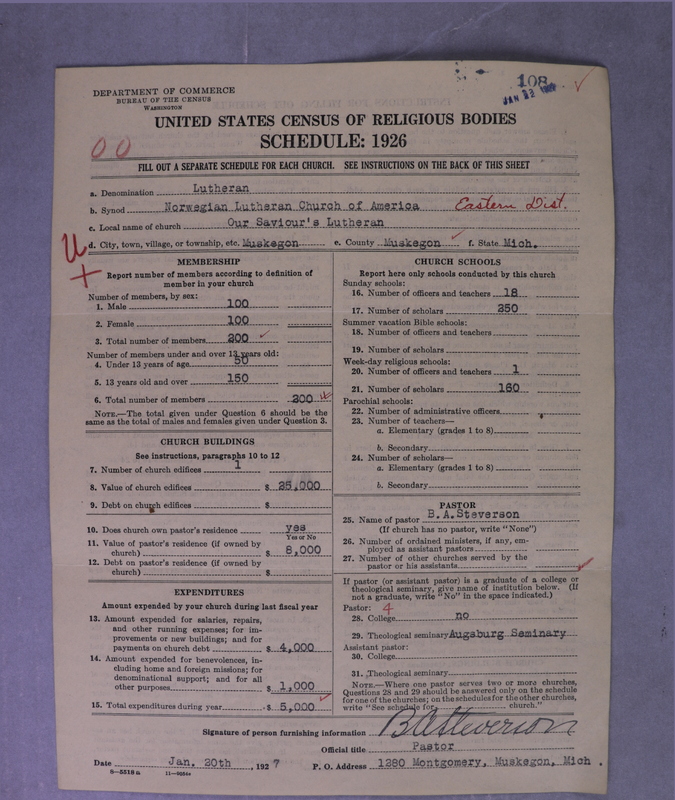 108
JAN 22
DEPARTMENT OF COMMERCE
BUREAU OF THE CENSUS
WASHINGTON
UNITED STATES CENSUS OF RELIGIOUS BODIES
SCHEDULE: 1926
00
FILL OUT A SEPARATE SCHEDULE FOR EACH CHURCH. SEE INSTRUCTIONS ON THE BACK OF THIS SHEET
a. Denomination Lutheran
b. Synod Norwegian Lutheran Church of America Eastern Dist.
c. Local name of church Our Saviour's Lutheran
d. City, town, village, or township, etc. Muskegon e. County Muskegon f. State Mich.
U
MEMBERSHIP
Report number of members according to definition of
member in your church
Number of members, by sex:
1. Male 100
2. Female 100
3. Total number of members 200
Number of members under and over 13 years old:
4. Under 13 years of age 50
5. 13 years old and over 150
6. Total number of members 200
NOTE.—The total given under Question 6 should be the
same as the total of males and females given under Question 3.
CHURCH BUILDINGS
See instructions, paragraphs 10 to 12
7. Number of church edifices 1
8. Value of church edifices $ 25,000
9. Debt on church edifices $
10. Does church own pastor's residence yes
Yes or No
11. Value of pastor's residence (if owned by
church) $ 8,000
12. Debt on pastor's residence (if owned by
church) $
EXPENDITURES
Amount expended by your church during last fiscal year
13. Amount expended for salaries, repairs,
and other running expenses; for im-
provements or new buildings; and for
payments on church debt $ 4,000
14. Amount expended for benevolences, in-
cluding home and foreign missions; for
denominational support; and for all
other purposes $ 1,000
15. Total expenditures during year $ 5,000
CHURCH SCHOOLS
Report here only schools conducted by this church
Sunday schools:
16. Number of officers and teachers 18
17. Number of scholars 250
Summer vacation Bible schools:
18. Number of officers and teachers
19. Number of scholars
Week-day religious schools:
20. Number of officers and teachers 1
21. Number of scholars 160
Parochial schools:
22. Number of administrative officers
23. Number of teachers—
a. Elementary (grades 1 to 8)
b. Secondary
24. Number of scholars—
a. Elementary (grades 1 to 8)
b. Secondary
PASTOR
25. Name of pastor B.A.Steverson
(If church has no pastor, write "None")
26. Number of ordained ministers, if any, em-
ployed as assistant pastors
27. Number of other churches served by the
pastor or his assistants
If pastor (or assistant pastor) is a graduate of a college or
theological seminary, give name of institution below. (If
not a graduate, write "No" in the space indicated.)
Pastor: 4
28. College no
29. Theological seminary Augsburg Seminary
Assistant pastor:
30. College
31. Theological seminary
NOTE.—Where one pastor serves two or more churches,
Questions 28 and 29 should be answered only on the schedule
for one of the churches; on the schedules for the other churches,
write "See schedule for church."
Signature of person furnishing information BASteverson
Official title Pastor
Date Jan, 20th, 1927 P. O. Address 1280 Montgomery, Muskegon, Mich.